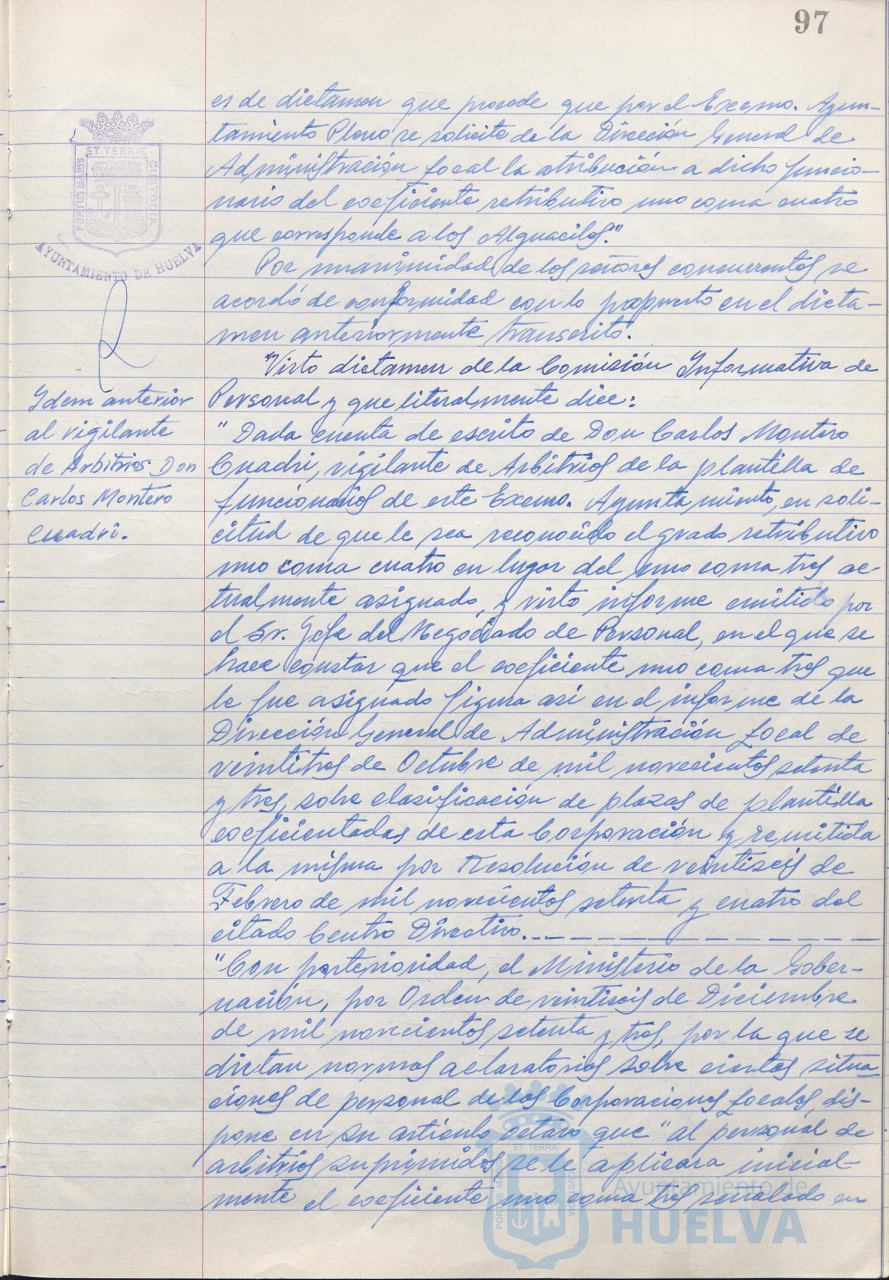 97
es de dictamen que procede que por el Excmo. Ayun-
tamiento Pleno se solicite de la Dirección General de
Administración Local la atribución a dicho funcio-
nario del coeficiente retributivo uno coma cuatro
que corresponde a los Alguaciles."
Por unanimidad de los señores concurrentes se
acordó de conformidad con lo propuesto en el dicta-
men anteriormente transcrito.
Visto dictamen de la Comisión Informativa de
Personal y que literalmente dice:
"Dada cuenta de escrito de Don Carlos Montero
Cuadri, vigilante de Arbitrios de la plantilla de
funcionarios de este Excmo. Ayuntamiento, en soli-
citud de que le sea reconocido el grado retributivo
uno coma cuatro en lugar del uno coma tres ac-
tualmente asignado, y visto informe emitido por
el Sr. Jefe del Negociado de Personal, en el que se
hace constar que el coeficiente uno coma tres que
le fue asignado figura así en el informe de la
Dirección General de Administración Local de
veintitres de Octubre de mil novecientos setenta
y tres, sobre clasificación de plazas de plantilla
coeficientadas de esta Corporación y remitida
a la misma por Resolución de veintiseis de
Febrero de mil novecientos setenta y cuatro del
citado Centro Directivo.
"Con posterioridad, el Ministerio de la Gober-
nación, por Orden de veintiseis de Diciembre
de mil novecientos setenta y tres, por la que se
dictan normas aclaratorias sobre ciertas situa
ciones de personal de las Corporaciones Locales, dis-
pone en su artículo octavo que "al personal de
arbitrios suprimidos se le aplicara inicial-
mente el coeficiente uno coma tres señalado en
PORTUS MARIS ET TERRÆ CUSTODIA
AYUNTAMIENTO DE HUELVA
Idem anterior
al vigilante
de Arbitrios Don
Carlos Montero
Cuadri.
PORTUS MARIS ET TERRÆ CUSTODIA
Ayuntamiento de
HUELVA